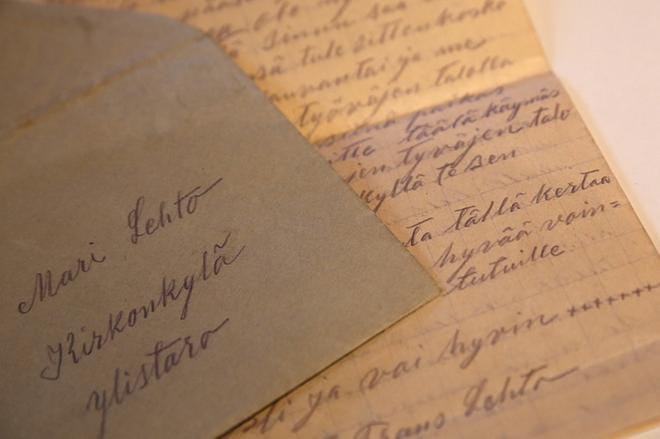 Mari Lehto
Kirkonkylä
ylistaro
sinun saa
tule sitten koska
lauvantai ja me
työväjen talolla
paikas
täälä käymäs
jen tyväjen talo
kyllä te sen
ta tällä kertaa
hyvää voin=
tutuille
sti ja vai hyvin +++++++
Frans Lehto